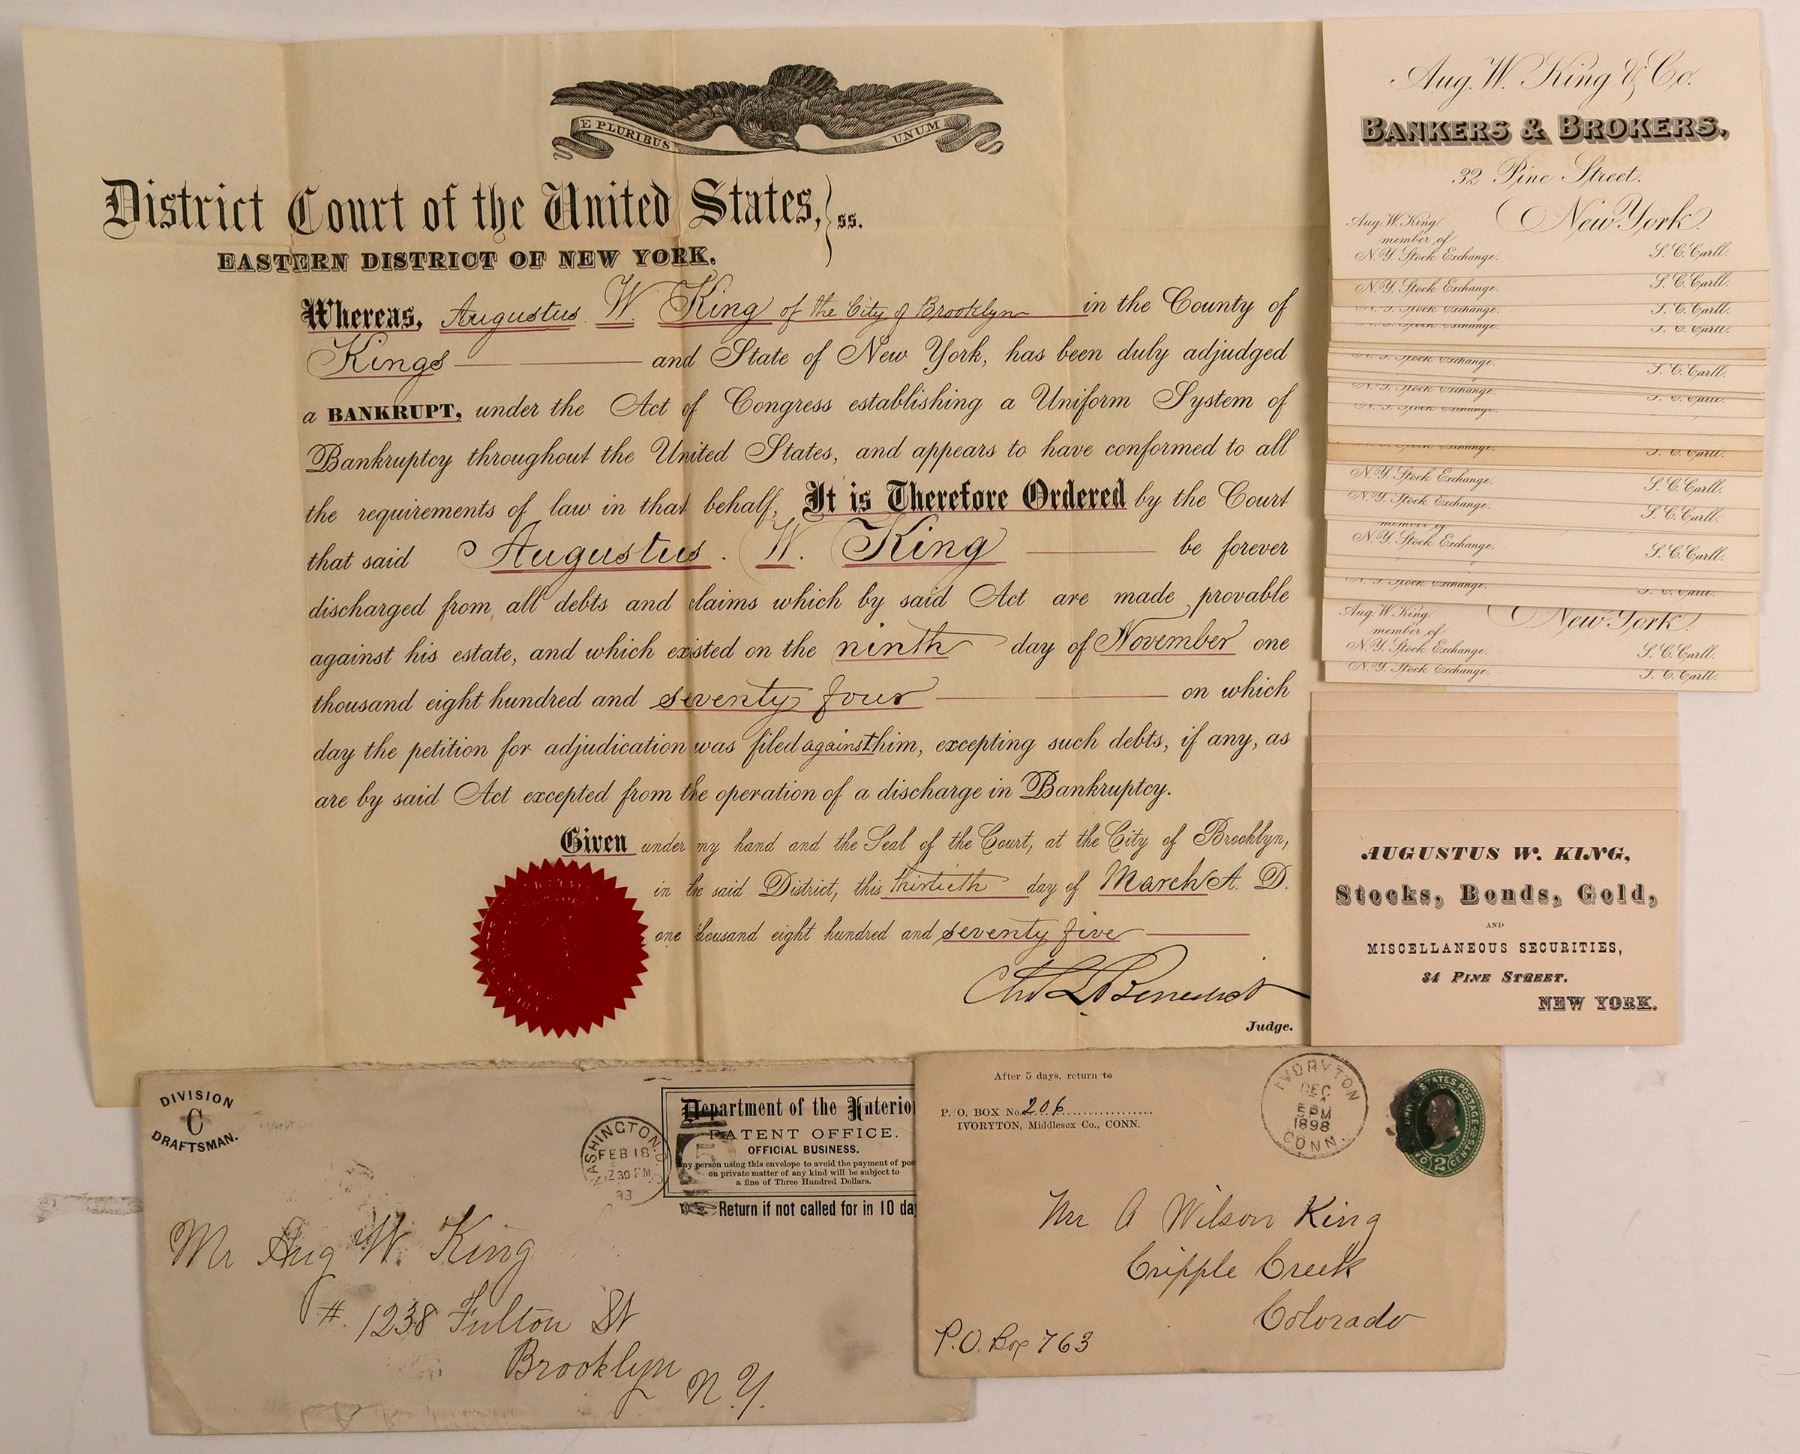 E PLURIBUS UNUM
District Court of the United States, } ss.
EASTERN DISTRICT OF NEW YORK.
Whereas, Augustus W. King of the City of Brooklyn in the County of
Kings and State of New York, has been duly adjudged
a BANKRUPT, under the Act of Congress establishing a Uniform System of
Bankruptcy throughout the United States, and appears to have conformed to all
the requirements of law in that behalf, It is Therefore Ordered by the Court
that said Augustus. W. King be forever
discharged from all debts and claims which by said Act are made provable
against his estate, and which existed on the ninth day of November one
thousand eight hundred and seventy four on which
day the petition for adjudication was filed against him, excepting such debts, if any, as
are by said Act excepted from the operation of a discharge in Bankruptcy.
Given under my hand and the Seal of the Court, at the City of Brooklyn,
in the said District, this thirtieth day of March A. D.
one thousand eight hundred and seventy five
Chs L Benedict
Judge.
Aug. W. King & Co.
BANKERS & BROKERS,
32 Pine Street.
New York
Aug W. King.
member of
N.Y. Stock Exchange.
S. C. Carll.
N.Y. Stock Exchange.
S. C. Carll.
N.Y. Stock Exchange.
S. C. Carll.
N.Y. Stock Exchange.
S. C. Carll.
N.Y. Stock Exchange.
S. C. Carll.
N.Y. Stock Exchange.
S. C. Carll.
N.Y. Stock Exchange.
N.Y. Stock Exchange.
S. C. Carll.
N.Y. Stock Exchange.
S. C. Carll.
N.Y. Stock Exchange.
S. C. Carll.
member of
N.Y. Stock Exchange.
S. C. Carll.
N.Y. Stock Exchange.
S. C. Carll.
Aug W. King.
New York.
member of
N.Y. Stock Exchange.
S. C. Carll.
N.Y. Stock Exchange.
S. C. Carll.
AUGUSTUS W. KING,
Stocks, Bonds, Gold,
AND
MISCELLANEOUS SECURITIES,
34 PINE STREET.
NEW YORK.
DIVISION
C
DRAFTSMAN.
WASHINGTON, D.C.
FEB 18
12 30 PM
Department of the Interio
PATENT OFFICE.
OFFICIAL BUSINESS.
ny person using this envelope to avoid the payment of pos
on private matter of any kind will be subject to
a fine of Three Hundred Dollars.
Return if not called for in 10 da
Mr Aug W. King
# 1238 Fulton St
Brooklyn
N.Y.
After 5 days, return to
P. O. BOX No. 206
IVORYTON, Middlesex Co., CONN.
IVORYTON
DEC
5 PM
1898
CONN.
UNITED STATES POSTAGE
2 CENTS
Mr A Wilson King
Cripple Creek
Colorado
P.O. Box 763